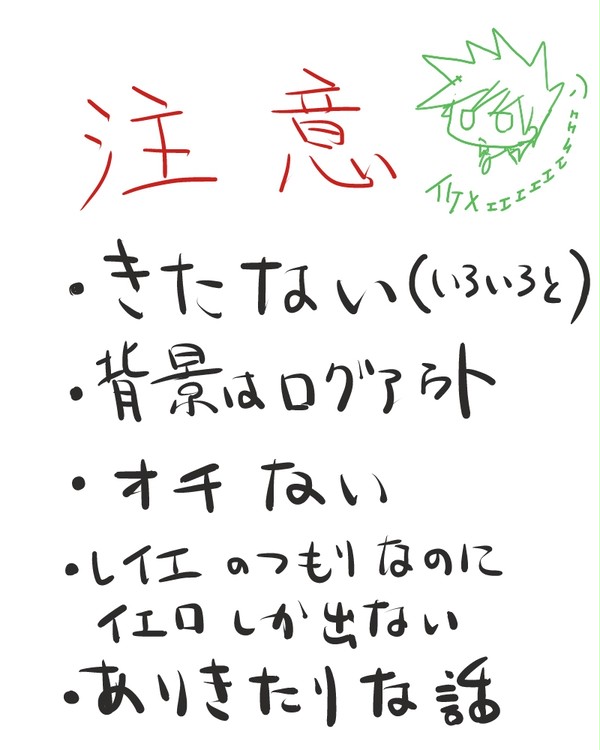 注意
イケメェェェェェェ
・きたない(いろいろと)
・背景はログアウト
・オチない
・レイエのつもりなのに
イエロしか出ない
・ありきたりな話